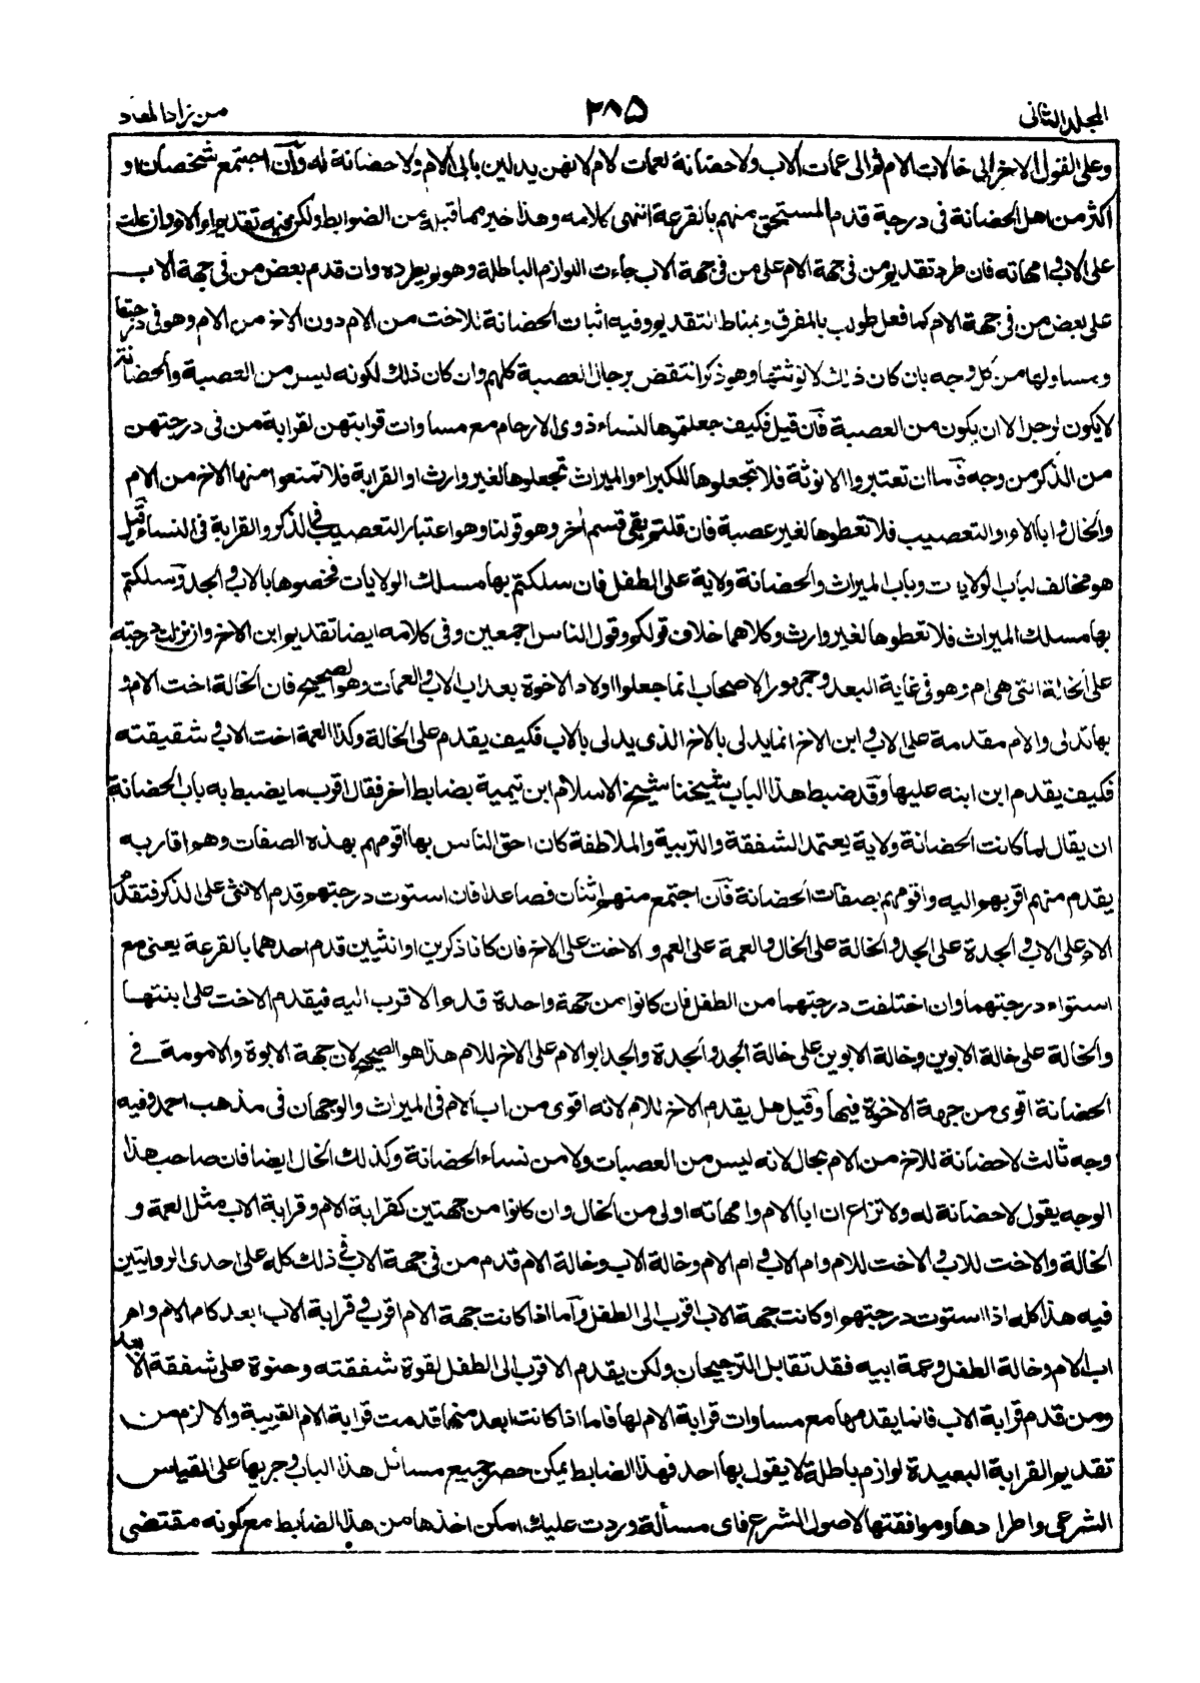 المجلد الثانى
٢٨٥
من زاد المعاد
وعلى القول الاخر الى خالات الام ثم الى عمات الاب ولا حضانة لعمات الام لانهن يدلين بابى الام ولا حضانة له وان اجتمع شخصان او
اكثر من اهل الحضانة فى درجة قدم المستحق منهم بالقرعة انتهى كلامه وهذا خير مما قبله من الضوابط ولكن فيه تقديم ام الام وان علت
على الاب وامهاته فان طرد تقديم من فى جهة الام على من فى جهة الاب جاءت اللوازم الباطلة وهو لم يطرده وان قدم بعض من فى جهة الاب
على بعض من فى جهة الام كما فعل طولب بالفرق وبمناط التقديم وفيه اثبات الحضانة للاخت من الام دون الاخ من الام وهو فى درجتها
ومساو لها من كل وجه بان كان ذلك لانوثتها وهو ذكر انتقض برجال العصبة كلهم وان كان ذلك لكونه ليس من العصبة والحضانة
لا يكون لرجل الا ان يكون من العصبة فان قيل فكيف جعلتموها لنساء ذوى الارحام مع مساوات قرابتهن لقرابة من فى درجتهن
من الذكر من وجه فاما ان تعتبروا الانوثة فلا تجعلوها للذكر او الميراث تجعلوها لغير وارث او القرابة فلا تمنعوا منها الاخ من الام
والخال وابا الام او التعصيب فلا تعطوها لغير عصبة فان قلتم بقى قسم اخر وهو قولنا وهو اعتبار التعصيب فى الذكر والقرابة فى النساء قيل
هو مخالف لباب الولايات وباب الميراث والحضانة ولاية على الطفل فان سلكتم بها مسلك الولايات فخصوها بالاب والجد وان سلكتم
بها مسلك الميراث فلا تعطوها لغير وارث وكلاهما خلاف قولكم وقول الناس اجمعين وفى كلامه ايضا تقديم ابن الاخ وان نزلت درجته
على الخالة التى هى ام وهو فى غاية البعد وجمهور الاصحاب انما جعلوا اولاد الاخوة بعد اب الاب والعمات وهو الصحيح فان الخالة اخت الام و
بها تدلى والام مقدمة على الاب وابن الاخ انما يدلى بالاخ الذى يدلى بالاب فكيف يقدم على الخالة وكذا العمة اخت الاب وشقيقته
فكيف يقدم ابن ابنه عليها وقد ضبط هذا الباب شيخنا شيخ الاسلام ابن تيمية بضابط اخر فقال اقرب ما يضبط به باب الحضانة
ان يقال لما كانت الحضانة ولاية يعتمد الشفقة والتربية والملاطفة كان احق الناس بها اقومهم بهذه الصفات وهم اقاربه
يقدم منهم اقربهم اليه واقومهم بصفات الحضانة فان اجتمع منهم اثنان فصاعدا فان استوت درجتهم قدم الانثى على الذكر فتقدم
الام على الاب والجدة على الجد والخالة على الخال والعمة على العم و الاخت على الاخ فان كانا ذكرين او انثيين قدم احدهما بالقرعة يعنى مع
استواء درجتهما وان اختلفت درجتهما من الطفل فان كانوا من جهة واحدة قدم الاقرب اليه فيقدم الاخت على ابنتها
والخالة على خالة الابوين وخالة الابوين على خالة الجد والجدة والجد ابو الام على الاخ للام هذا هو الصحيح لان جهة الابوة والامومة فى
الحضانة اقوى من جهة الاخوة فيها وقيل هل يقدم الاخ للام لانه اقوى من اب الام فى الميراث والوجهان فى مذهب احمد وفيه
وجه ثالث لا حضانة للاخ من الام بحال لانه ليس من العصبات ولا من نساء الحضانة وكذلك الخال ايضا فان صاحب هذا
الوجه يقول لا حضانة له ولا نزاع ان ابا الام وامهاته اولى من الخال وان كانوا من جهتين كقرابة الام وقرابة الاب مثل العمة و
الخالة والاخت للاب والاخت للام وام الاب وام الام وخالة الاب وخالة الام قدم من فى جهة الاب فى ذلك كله على احدى الروايتين
فيه هذا كله اذا استوت درجتهم او كانت جهة الاب اقرب الى الطفل واما اذا كانت جهة الام اقرب وقرابة الاب ابعد كام الام وام
اب الام وخالة الطفل وعمة ابيه فقد تقابل الترجيحان ولكن يقدم الاقرب الى الطفل لقوة شفقته وحنوة على شفقة الابعد
ومن قدم قرابة الاب فانما يقدمها مع مساوات قرابة الام لها فاما اذا كانت ابعد منها قدمت قرابة الام القريبة والا لزم من
تقديم القرابة البعيدة لوازم باطلة لا يقول بها احد فهذا الضابط يمكن حصر جميع مسائل هذا الباب وجريها على القياس
الشرعى واطرادها وموافقتها لاصول الشرع فاى مسألة وردت عليك امكن اخذها من هذا الضابط مع كونه مقتضى